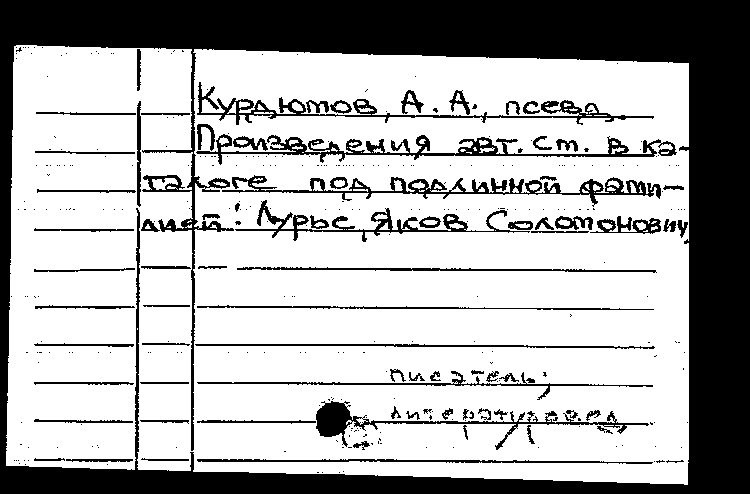 Курдюмов, А. А., псевд.
Произведения авт. см. в ка-
талоге под подлинной фами-
лией: Лурье, Яков Соломонович
писатель;
литературовед